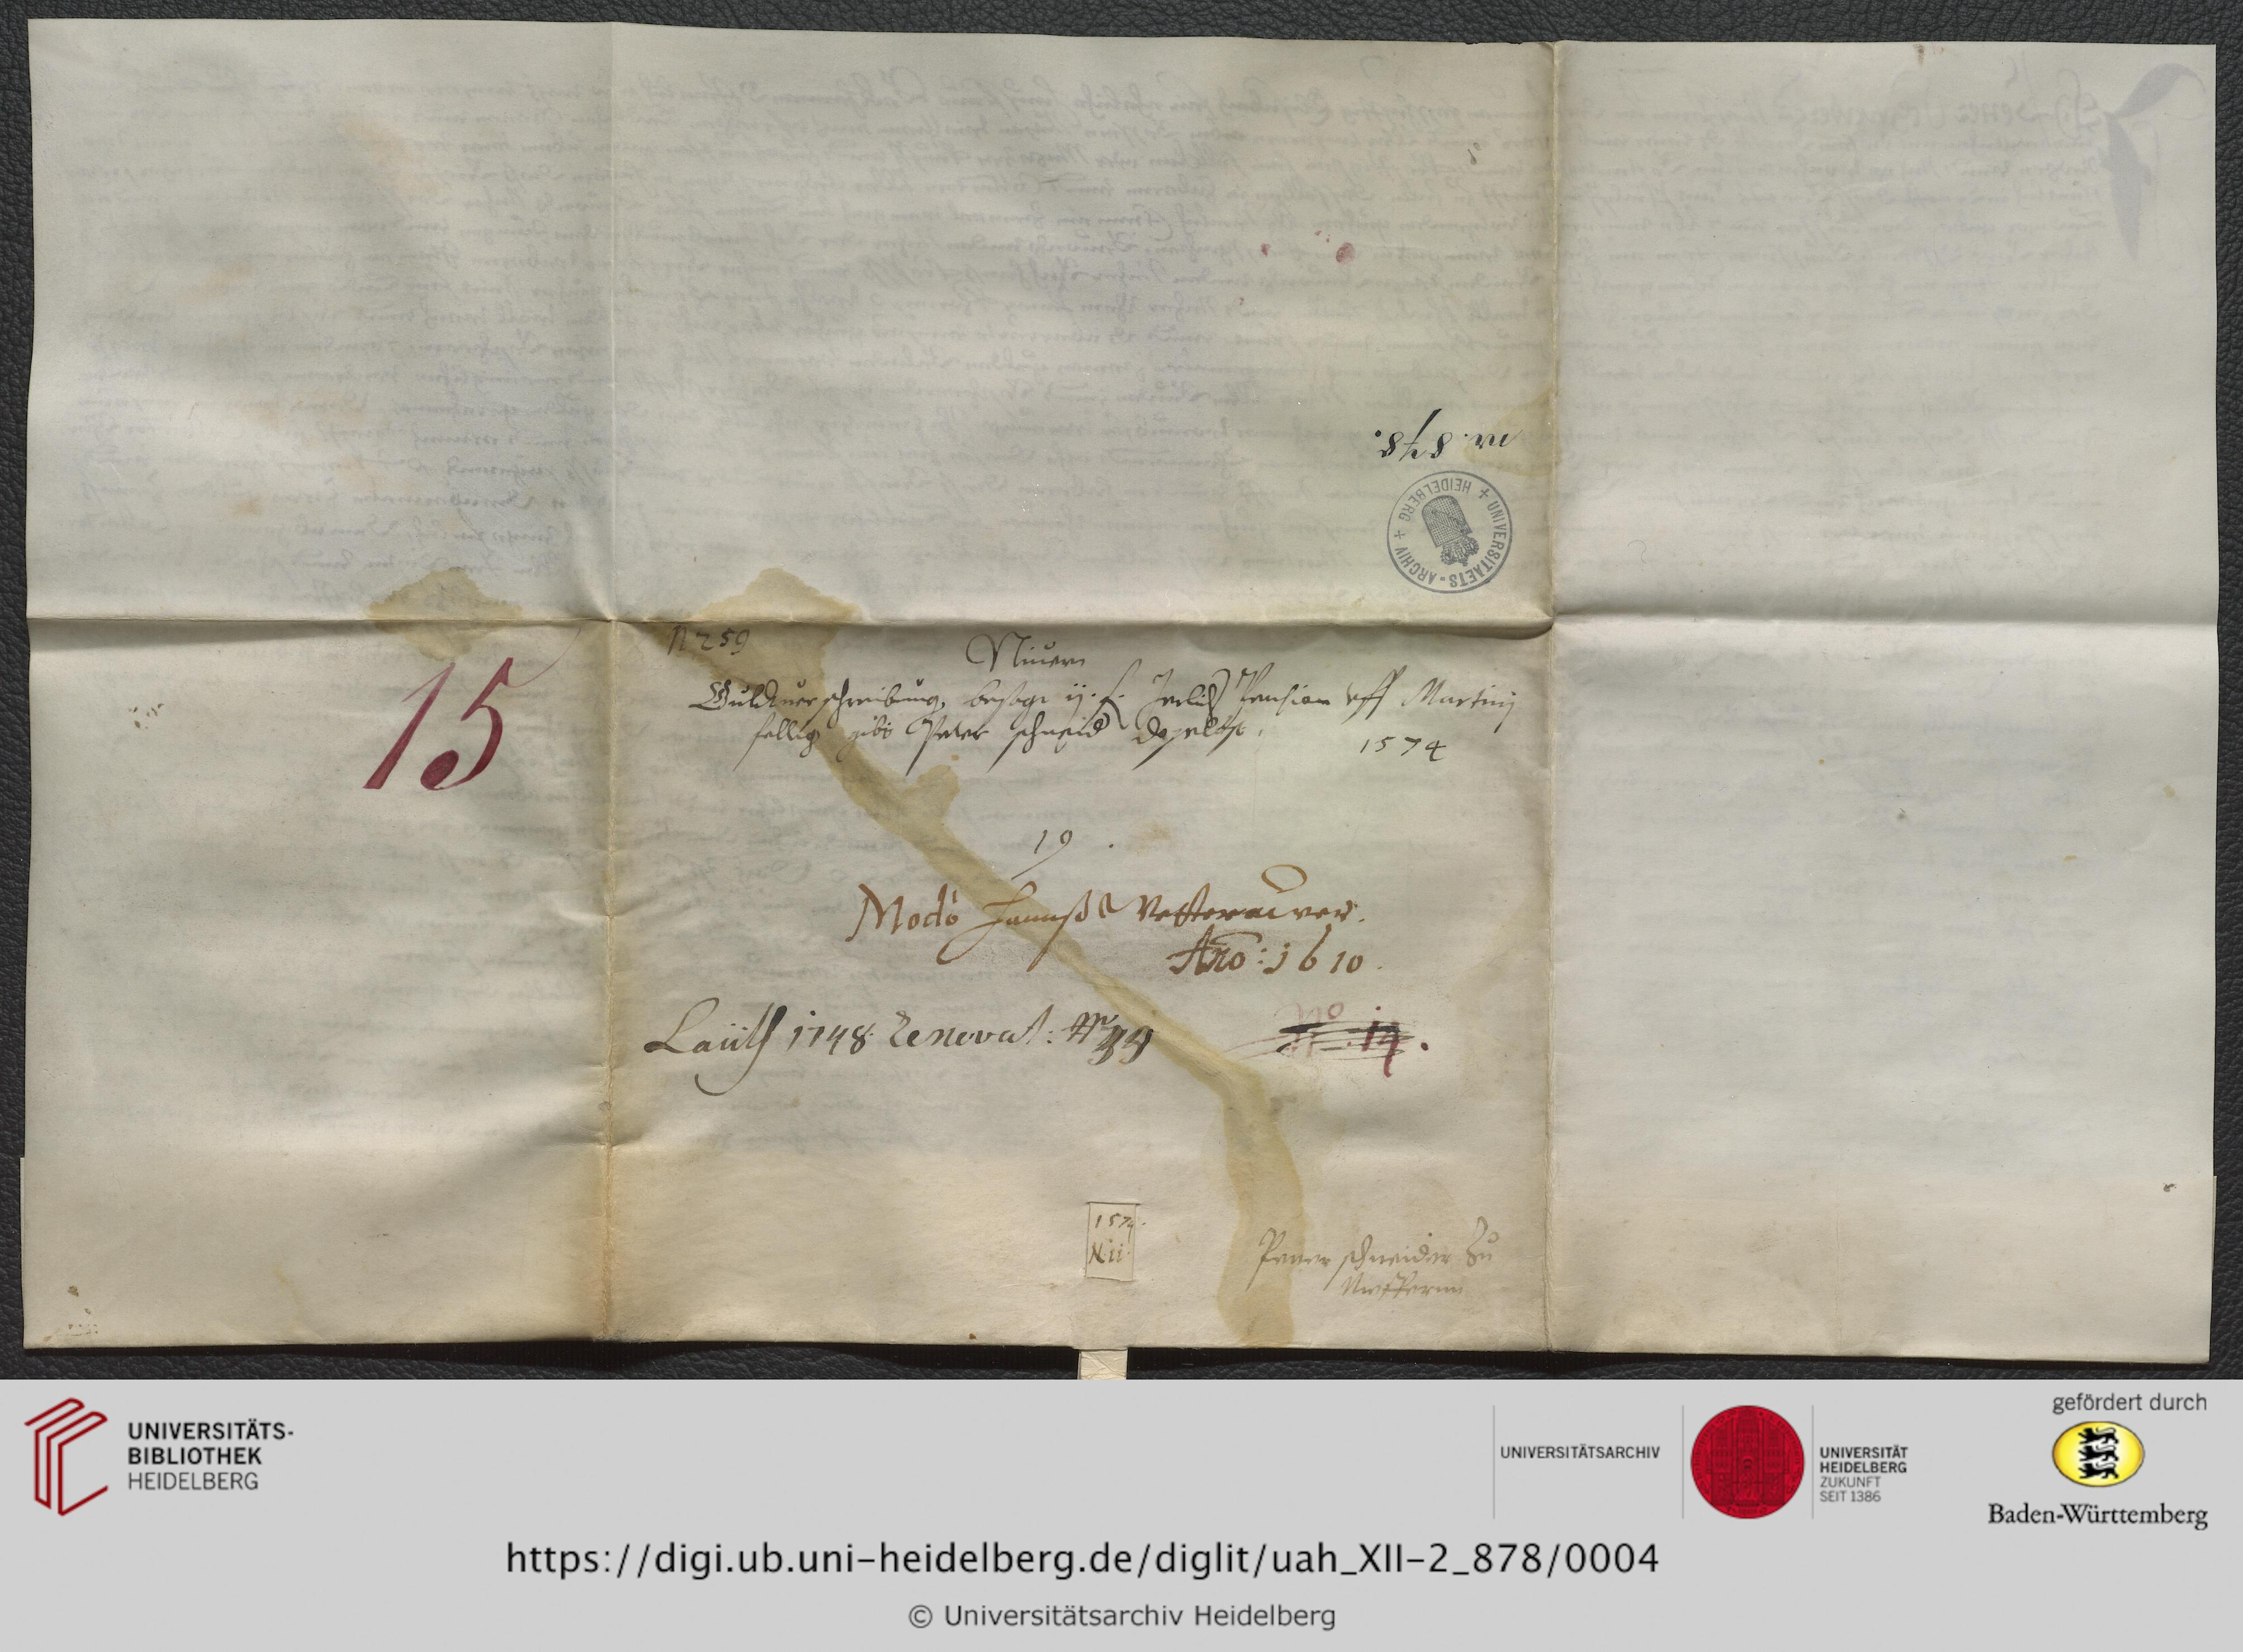 nr. 878.
UNIVERSITAETS-ARCHIV + HEIDELBERG +
N 259
15
Gultverschreibung, besagt ij. f. Jerlich Pension uff Martinj
fellig gibt Peter schneid daselbst.
1574
19.
Modo Hannß Vetterauwer.
Ano: 1610.
Lauth 1748. Renovat: Nr 39
No 14.
1574.
N ii
Peter schneider Zu
UNIVERSITÄTS-
BIBLIOTHEK
HEIDELBERG
UNIVERSITÄTSARCHIV
UNIVERSITÄT
HEIDELBERG
ZUKUNFT
SEIT 1386
gefördert durch
Baden-Württemberg
https://digi.ub.uni-heidelberg.de/diglit/uah_XII-2_878/0004
© Universitätsarchiv Heidelberg